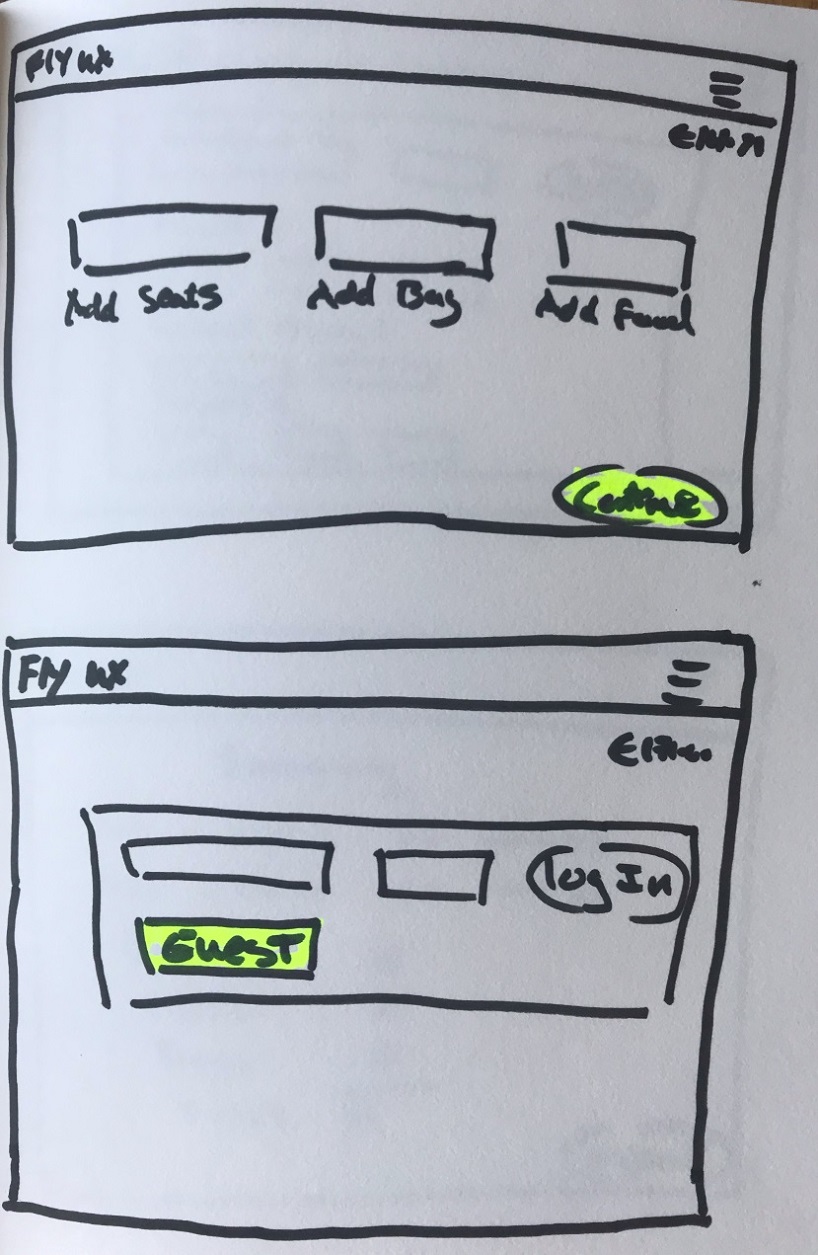 Fly UX
Add Seats Add Bag Add Food
Continue
Fly UX
Log In
Guest